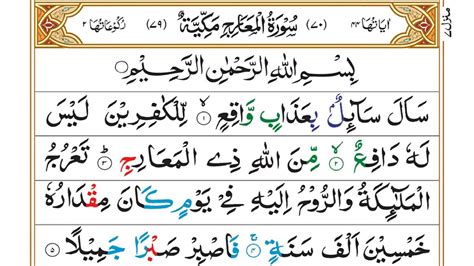 اٰیَاتُهَا ۴۴ (۷۰) سُوْرَةُ الْمَعَارِجِ مَکِّیَّةٌ (۷۹) رُکُوْعَاتُهَا ۲
منزل ۷
بِسْمِ اللّٰهِ الرَّحْمٰنِ الرَّحِیْمِ
سَاَلَ سَآئِلٌۢ بِعَذَابٍ وَّاقِعٍ ۙ﴿۱﴾ لِّلْکٰفِرِیْنَ لَیْسَ
لَهٗ دَافِعٌ ۙ﴿۲﴾ مِّنَ اللّٰهِ ذِی الْمَعَارِجِ ؕ﴿۳﴾ تَعْرُجُ
الْمَلٰٓئِکَةُ وَالرُّوْحُ اِلَیْهِ فِیْ یَوْمٍ کَانَ مِقْدَارُهٗ
خَمْسِیْنَ اَلْفَ سَنَةٍ ۚ﴿۴﴾ فَاصْبِرْ صَبْرًا جَمِیْلًا ﴿۵﴾